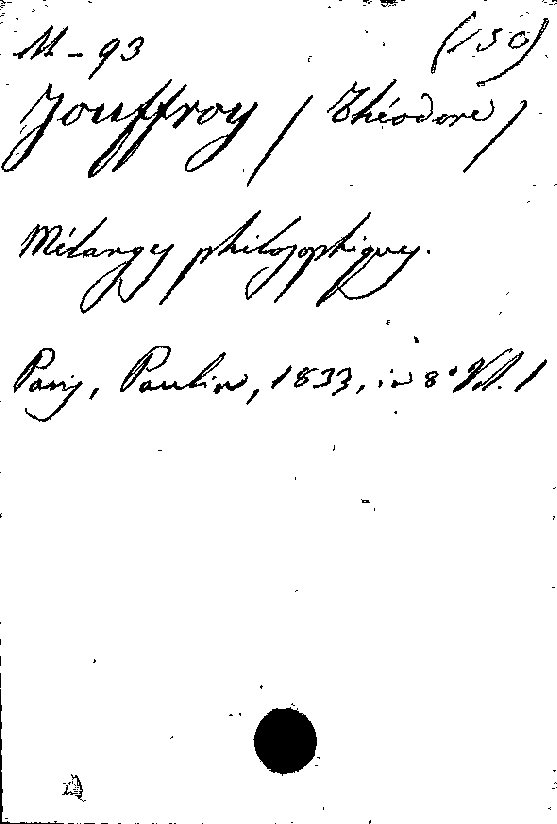 M - 93 (150)
Jouffroy (Théodore)
Mélanges philosophiques.
Paris, Paulin, 1833, in 8° Vol. 1